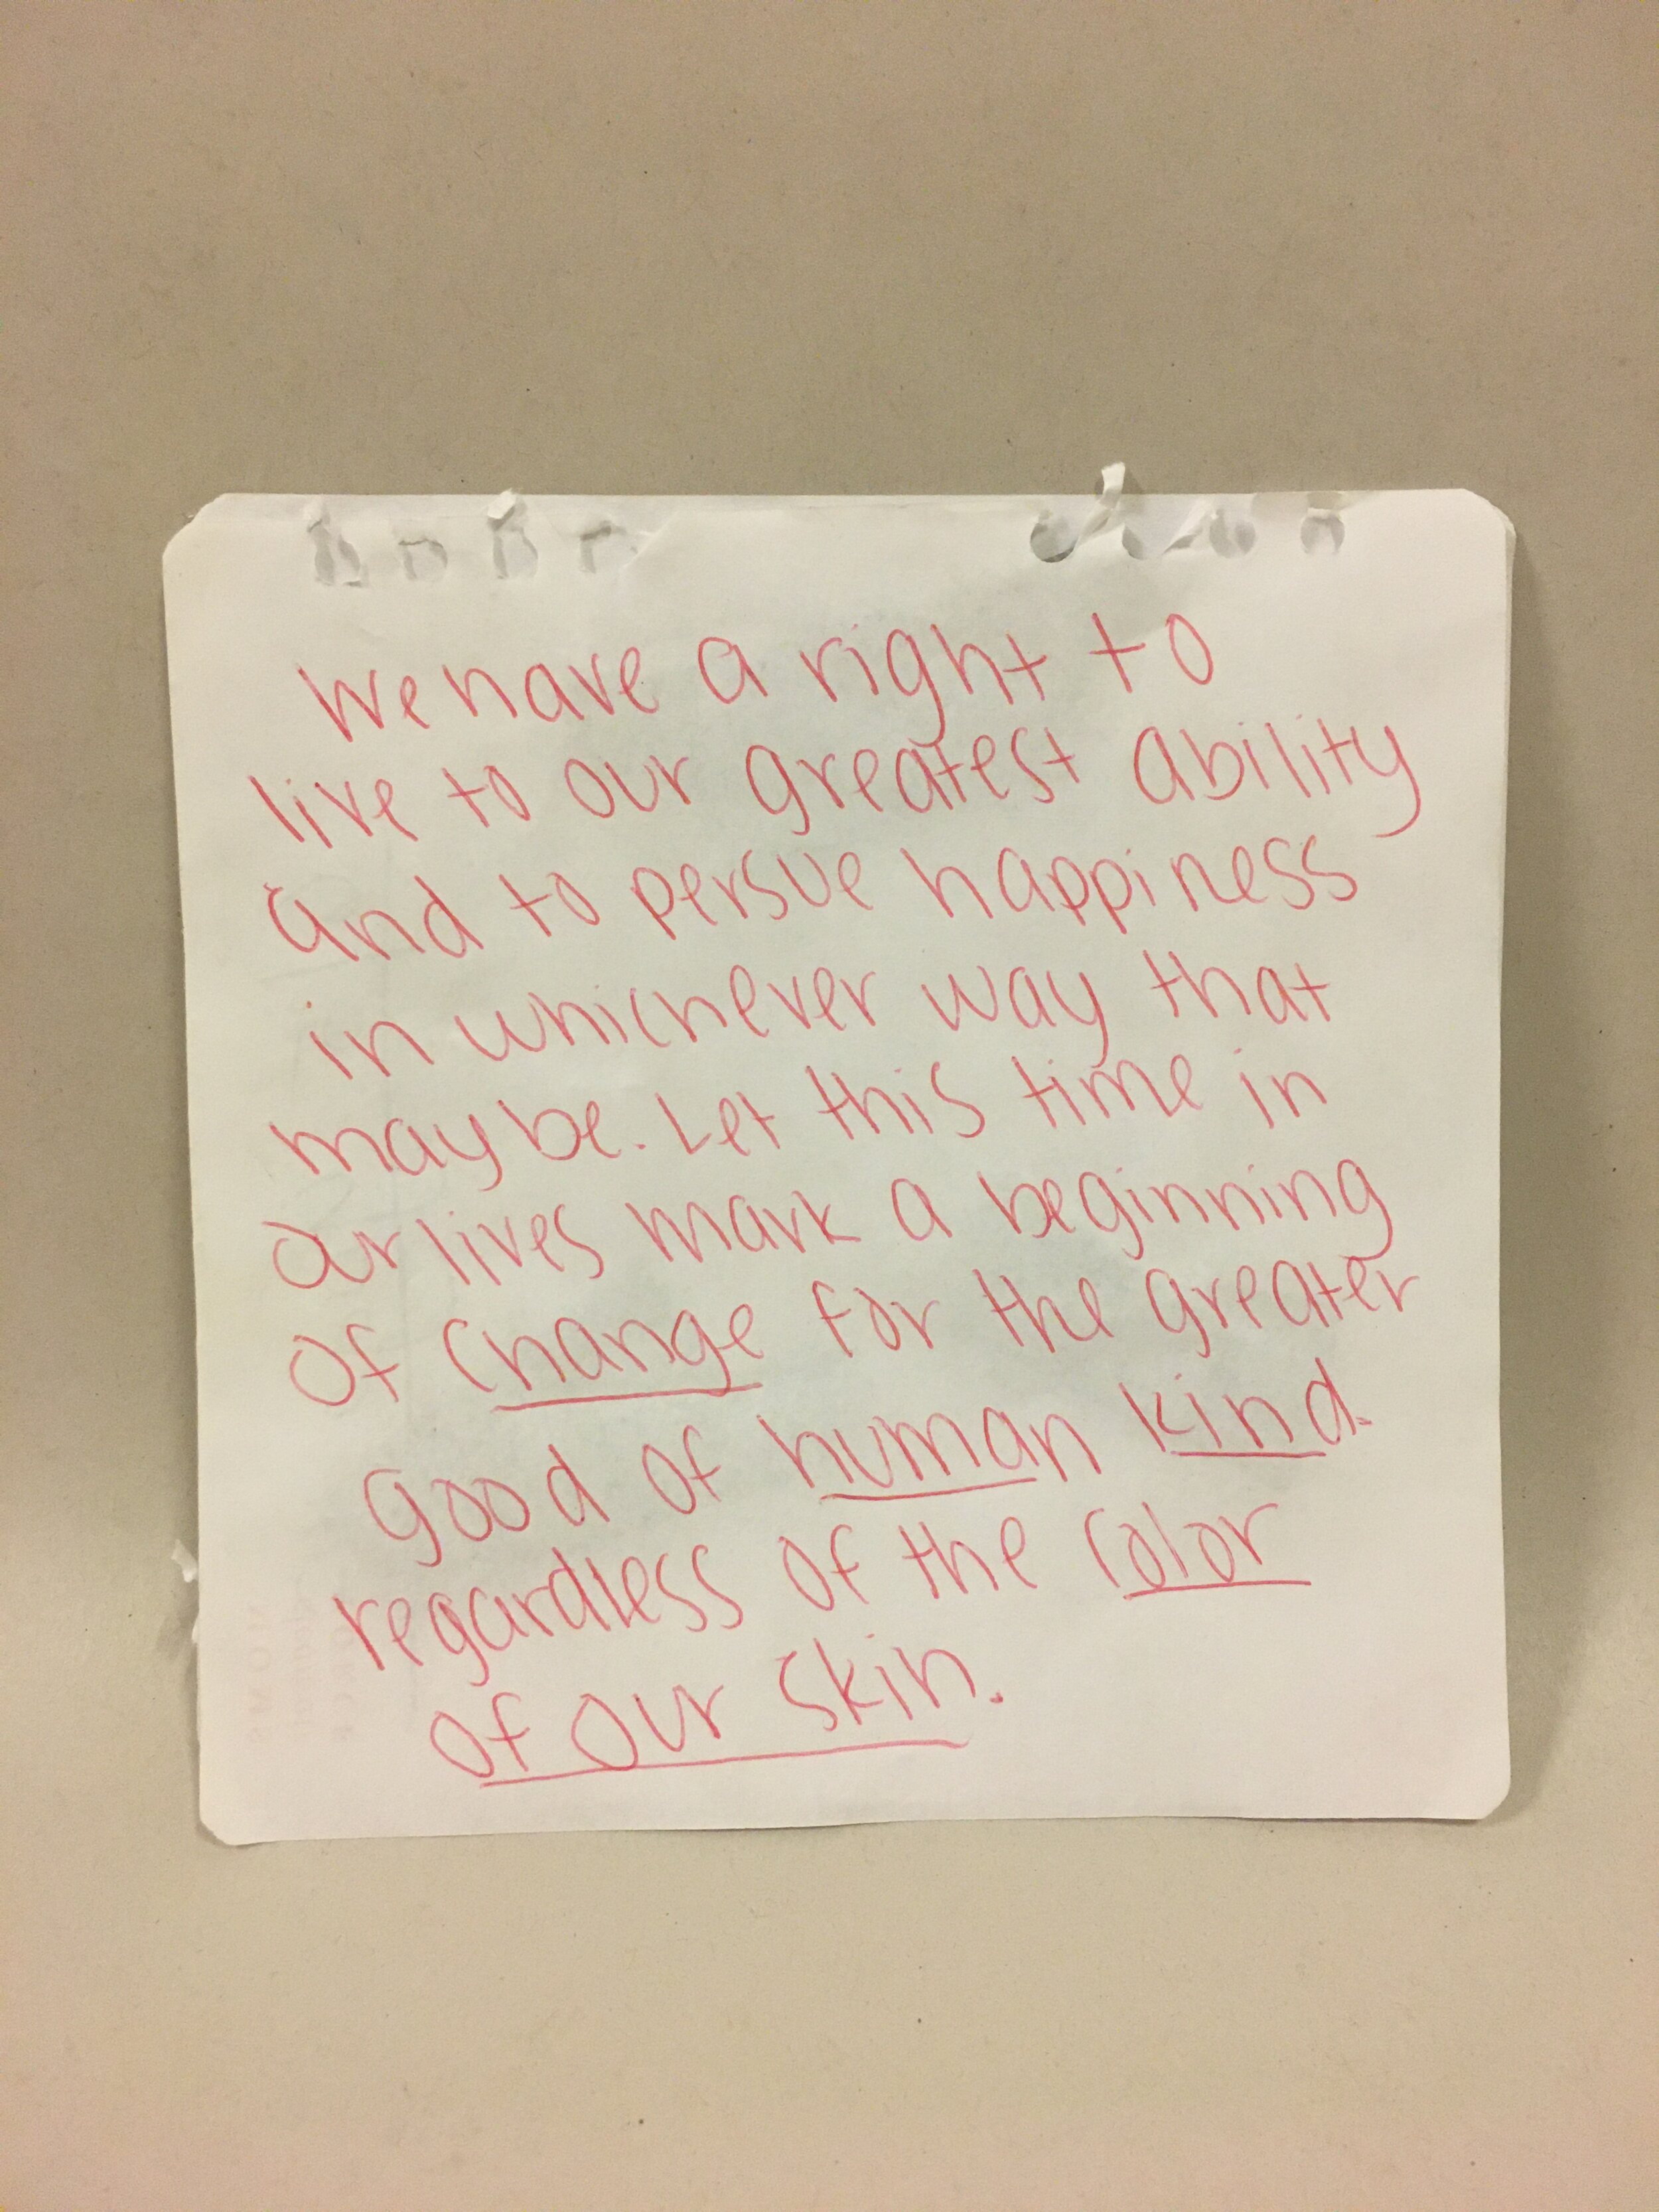 We have a right to
live to our greatest ability
and to persue happiness
in whichever way that
may be. Let this time in
our lives mark a beginning
of change for the greater
good of human kind.
regardless of the color
of our skin.